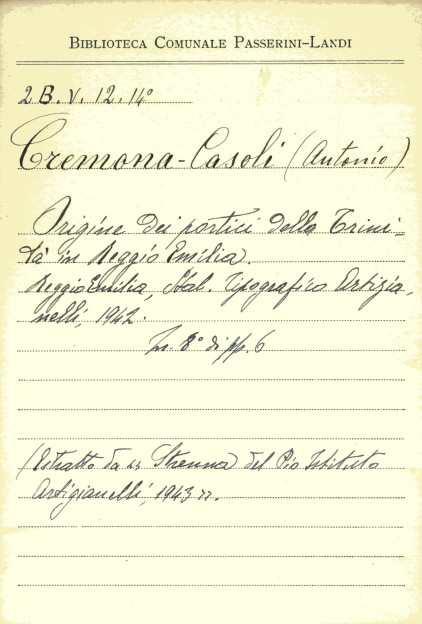 BIBLIOTECA COMUNALE PASSERINI-LANDI
2 B. V. 12. 14°
Cremona-Casoli (Antonio)
Origine dei portici della Trini-
tà in Reggio Emilia.
Reggio Emilia, Stab. Tipografico Artigia,
nelli, 1942.
In. 8° di pp. 6
(Estratto da „ Strenna del Pio Istituto
Artigianelli, 1943 „.